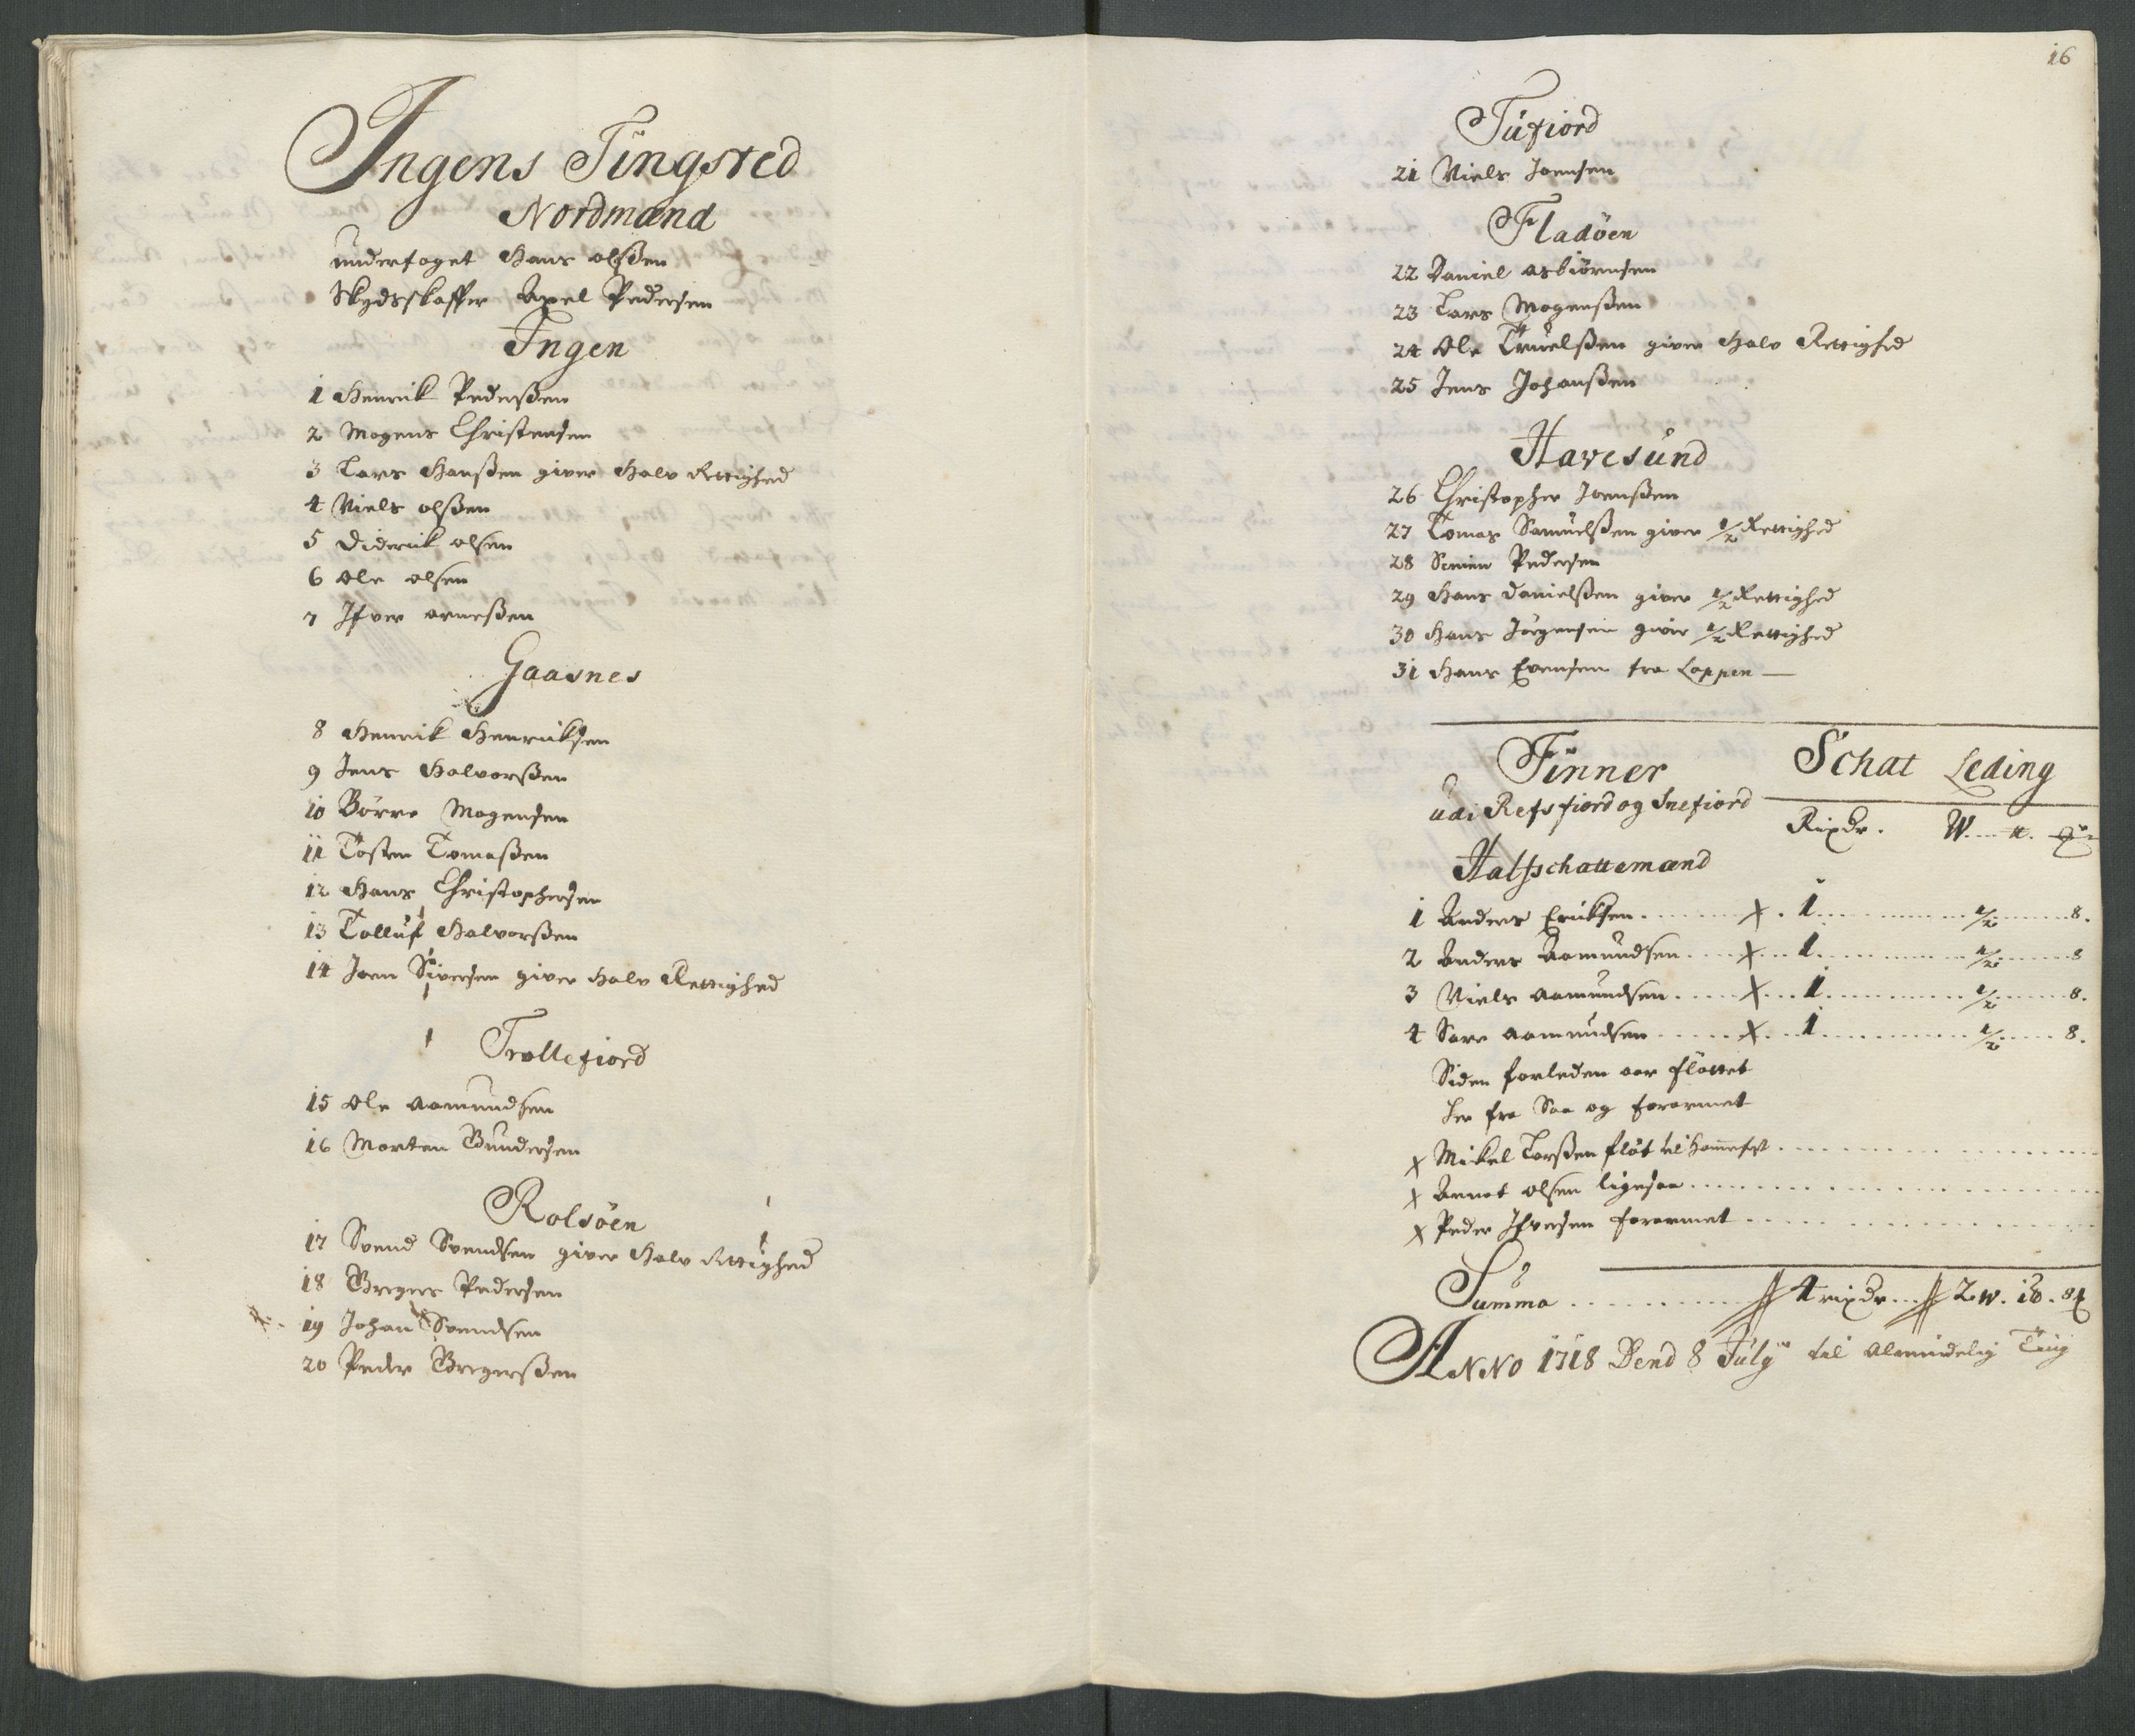 Ingens Tingsted
Nordmænd
underfoget Hans olßen
Skydsskaffer Axel Pedersen
Ingen
1 Henrik Pederßen
2 Mogens Christensen
3 Lars Hanßen giver Halv Rettighed
4 Niels olßen
5 Diderik olsen
6 Ole olsen
7 Ifver arneßen
Gaasnes
8 Henrik Henriksen
9 Jens Halvorßen
10 Börre Mogensen
11 Tosten Tomaßen
12 Hans Christophersen
13 Tolluf Halvorßen
14 Joen Siversen giver Halv Rettighed
Trollefiord
15 Ole Aamundsen
16 Morten Gundersen
Rolsöen
17 Svend Svendsen giver Halv Rettighed
18 Gregers Pedersen
19 Johan Svendsen
20 Peder Gregerßen
16
Tufiord
21 Niels Joensen
Fladöen
22 Daniel asbiörnsen
23 Lars Mogenßen
24 Ole Truelßen giver Halv Rettighed
25 Jens Johanßen
Havesund
26 Christopher Joenßen
27 Tomas Samuelßen giver 1/2 Rettighed
28 Simen Pedersen
29 Hans Danielßen giver 1/2 Rettighed
30 Hans Jörgensen giver 1/2 Rettighed
31 Hans Evensen fra Loppen
Finner Schat Leding
udi Refsfiord og Snefiord
Rixdr. W. 
Halfschattemænd
1 Anders Eriksen x 1 1/2 8.
2 Anders Aamundsen x 1 1/2 8
3 Niels aamundsen x 1 1/2 8.
4 Sare aamundsen x 1 1/2 8.
Siden forleden aar flöttet
her fra Saa og forarmet
x Mikel Larßen flöt til Hamefest
x Arnot olsen ligesaa
x Peder Ifversen forarmet
Summa 4 rixdr 2 W. 
ANNO 1718 Dend 8 July til Almindelig Ting